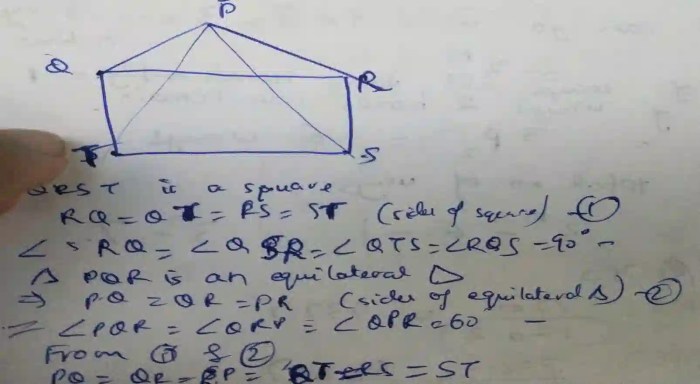 P
Q R
T S
QRST is a square
RQ = QT = RS = ST (sides of square) — ①
∠SRQ = ∠Q SR = ∠QTS = ∠RQS = 90° —
Δ PQR is an equilateral Δ
⇒ PQ = QR = PR (sides of equilateral Δ) — ②
= ∠PQR = ∠QRP = ∠QPR = 60 —
From ① & ②
PQ = QR = RP = QT = RS = ST